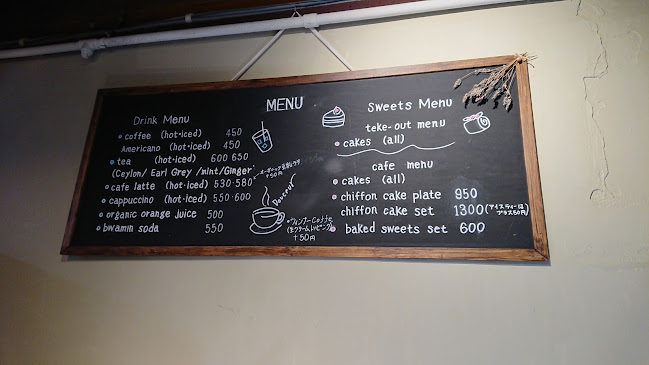 MENU
Drink Menu
coffee (hot・iced) 450
Americano (hot・iced) 450
tea (hot・iced) 600 650
(Ceylon/ Earl Grey /mint/Ginger)
+50円
cafe latte (hot・iced) 530・580
cappuccino (hot・iced) 550・600
organic orange juice 500
bwamin soda 550
ウィンナーCoffe
+50円
Sweets Menu
teke-out menu
cakes (all)
cafe menu
cakes (all)
chiffon cake plate 950
chiffon cake set 1300 (アイスティーは
プラス50円)
baked sweets set 600